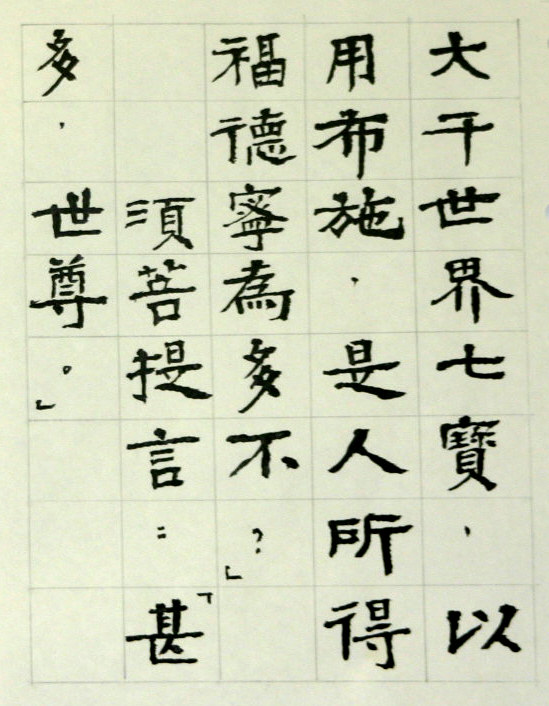 大千世界七寶，以
用布施，是人所得
福德寧為多不？」
須菩提言：「甚
多，世尊。」